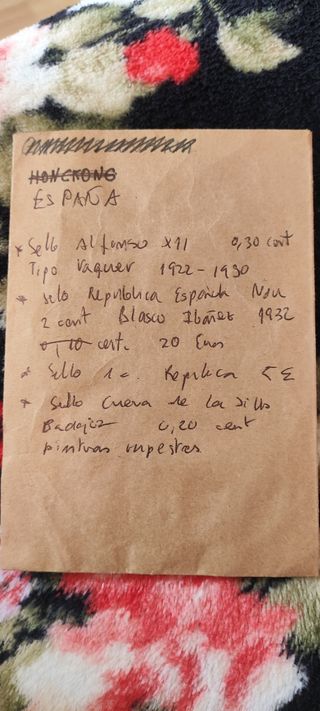 HONGKONG
ESPAÑA
* Sello Alfonso XII 0,30 cent
Tipo Vaquer 1922-1930
* sello Republica Española
2 cent Blasco Ibáñez 1932
0,10 cent. 20 Euros
* Sello 1a. Republica 5 €
* Sello Cueva de la Silla
Badajoz 0,20 cent
pinturas rupestres